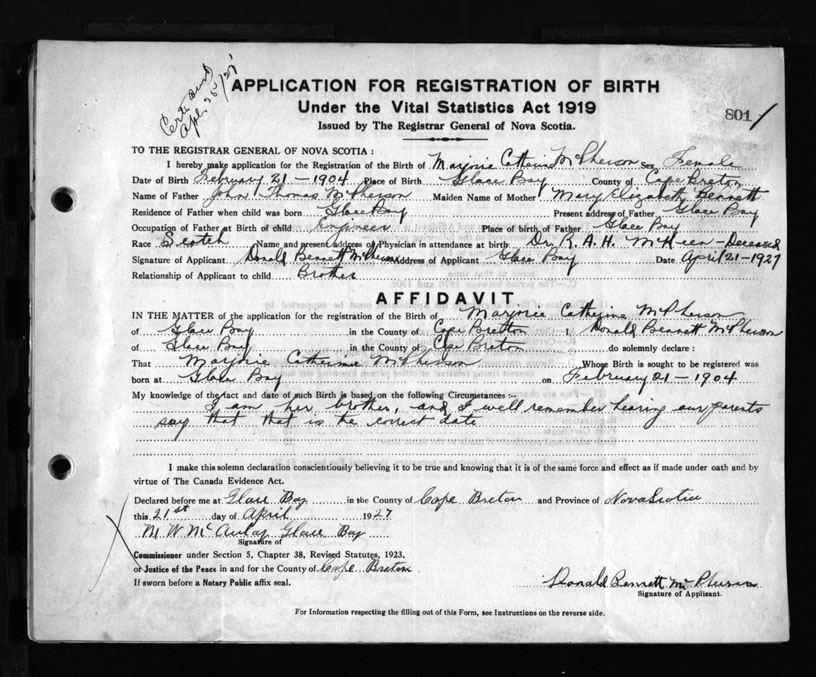 Certi send
Apl. 25/27
APPLICATION FOR REGISTRATION OF BIRTH
Under the Vital Statistics Act 1919
801
Issued by The Registrar General of Nova Scotia.
TO THE REGISTRAR GENERAL OF NOVA SCOTIA :
I hereby make application for the Registration of the Birth of Marjorie Catherine McPherson Sex Female
Date of Birth February 21 - 1904 Place of Birth Glace Bay County of Cape Breton
Name of Father John Thomas McPherson Maiden Name of Mother Mary Elizabeth Bennett
Residence of Father when child was born Glace Bay Present address of Father Glace Bay
Occupation of Father at Birth of child Engineer Place of birth of Father Glace Bay
Race Scotch Name and present address of Physician in attendance at birth Dr. K. A. H. McKeen - Deceased
Signature of Applicant Donald Bennett McPherson Address of Applicant Glace Bay Date April 21 - 1927
Relationship of Applicant to child Brother
AFFIDAVIT
IN THE MATTER of the application for the registration of the Birth of Marjorie Catherine McPherson
of Glace Bay in the County of Cape Bretton I, Donald Bennett McPherson
of Glace Bay in the County of Cape Breton do solemnly declare :
That Marjorie Catherine McPherson Whose Birth is sought to be registered was
born at Glace Bay on February 21 - 1904
My knowledge of the fact and date of such Birth is based on the following Circumstances :-
I am her brother, and I well remember hearing our parents
say that that is the correct date
I make this solemn declaration conscientiously believing it to be true and knowing that it is of the same force and effect as if made under oath and by
virtue of The Canada Evidence Act.
Declared before me at Glace Bay in the County of Cape Breton and Province of Nova Scotia
this 21st day of April 1927
M W McAulay Glace Bay
Signature of
Commissioner under Section 5, Chapter 38, Revised Statutes, 1923.
or Justice of the Peace in and for the County of Cape Breton
If sworn before a Notary Public affix seal.
Donald Bennett McPherson
Signature of Applicant.
For Information respecting the filling out of this Form, see Instructions on the reverse side.